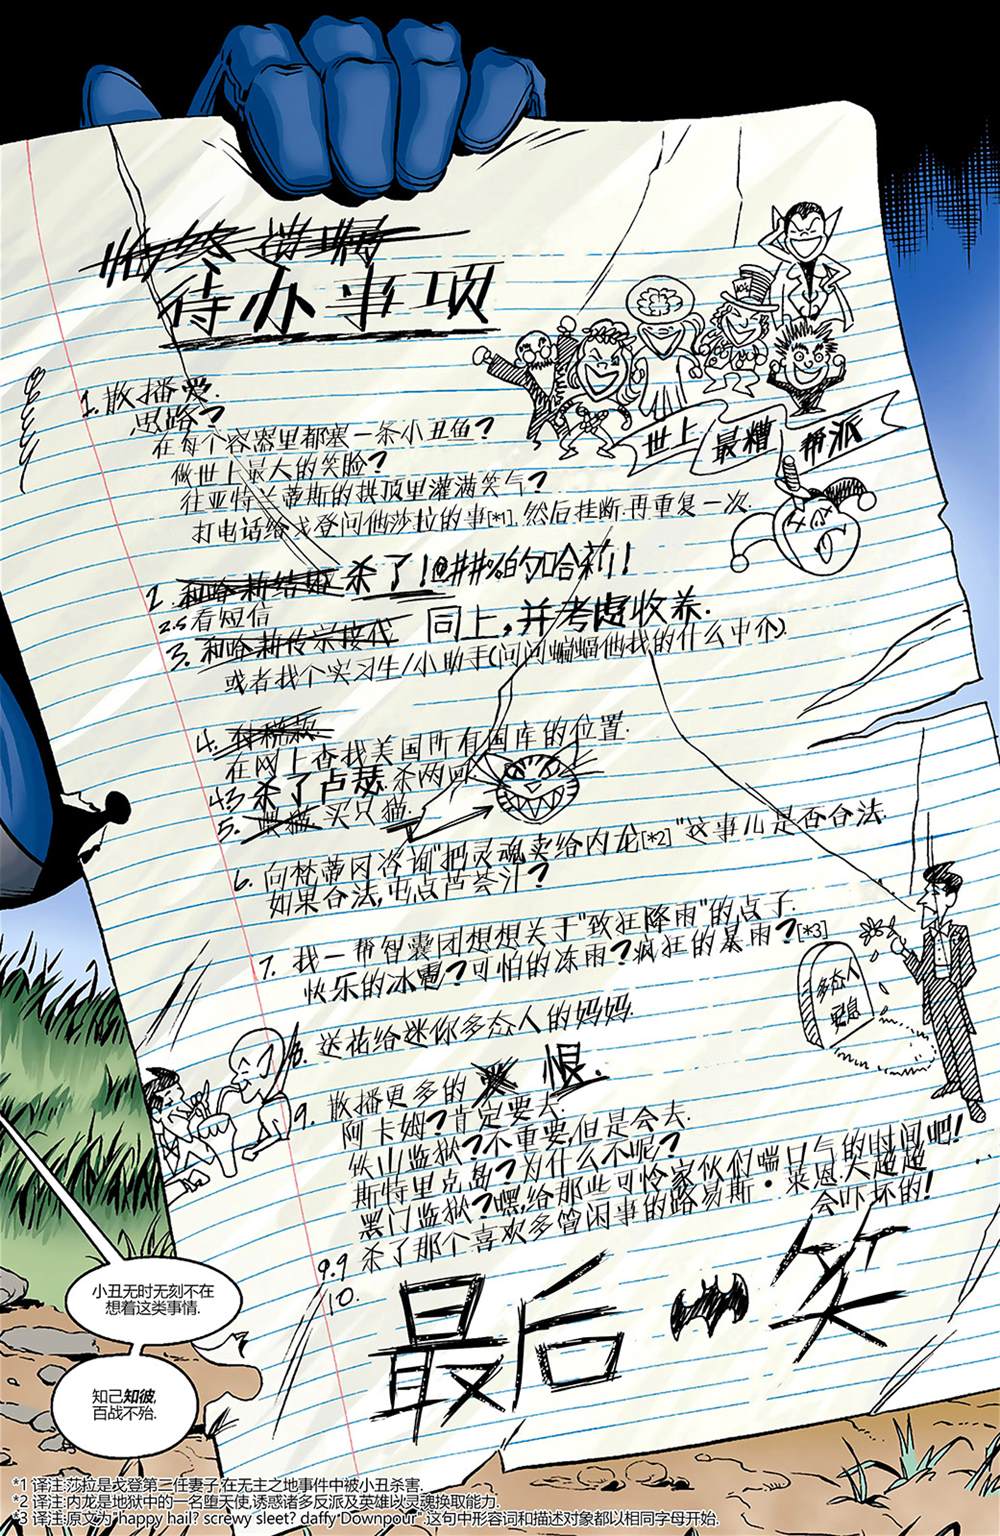 待办事项
世上 最糟 帮派
1. 散播爱.
思路？
在每个容器里都塞一条小丑鱼？
做世上最大的笑脸？
往亚特兰蒂斯的拱顶里灌满笑气？
打电话给戈登问他莎拉的事[*1], 然后挂断.再重复一次.
2. 和哈莉结婚 杀了!@##%的哈莉!
2.5 看短信
3. 和哈莉传宗接代 同上,并考虑收养.
或者找个实习生/小助手(问问蝙蝠他找的什么中介).
4.
在网上查找美国所有国库的位置.
4.5 杀了卢瑟.杀两回.
5. 喂猫.买只猫.
6. 向梵蒂冈咨询"把灵魂卖给内龙[*2]"这事儿是否合法.
如果合法,屯点芦荟汁？
7. 找一帮智囊团想想关于"致狂降雨"的点子.
快乐的冰雹？可怕的冻雨？疯狂的暴雨？[*3]
多态人
安息
8. 送花给迷你多态人的妈妈.
9. 散播更多的爱 恨.
阿卡姆？肯定要去.
铁山监狱？不重要,但是会去.
斯特里克岛？为什么不呢？
黑门监狱？嘿,给那些可怜家伙们喘口气的时间吧!
9.9 杀了那个喜欢多管闲事的路易斯·莱恩.大超超
会吓坏的!
10.
最后一笑
小丑无时无刻不在
想着这类事情.
知己知彼,
百战不殆.
*1 译注:莎拉是戈登第二任妻子,在无主之地事件中被小丑杀害.
*2 译注:内龙是地狱中的一名堕天使,诱惑诸多反派及英雄以灵魂换取能力.
*3 译注:原文为"happy hail? screwy sleet? daffy Downpour",这句中形容词和描述对象都以相同字母开始.